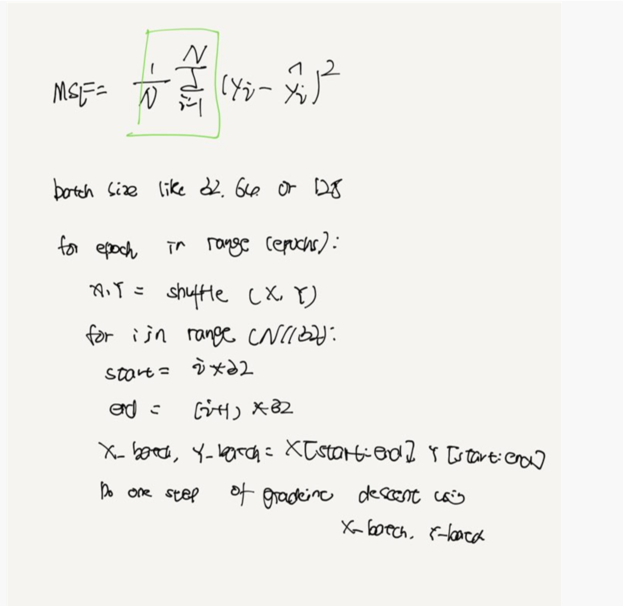 MSE = 1/N N Σ i=1 (Yi - Ŷi)²
batch size like 32, 64 or 128
for epoch in range (epochs):
X, Y = shuffle (X, Y)
for i in range (N//32):
start = i*32
end = (i+1)*32
X_batch, Y_batch = X[start:end] Y[start:end]
Do one step of gradeinc descent usig
X_batch, Y_batch